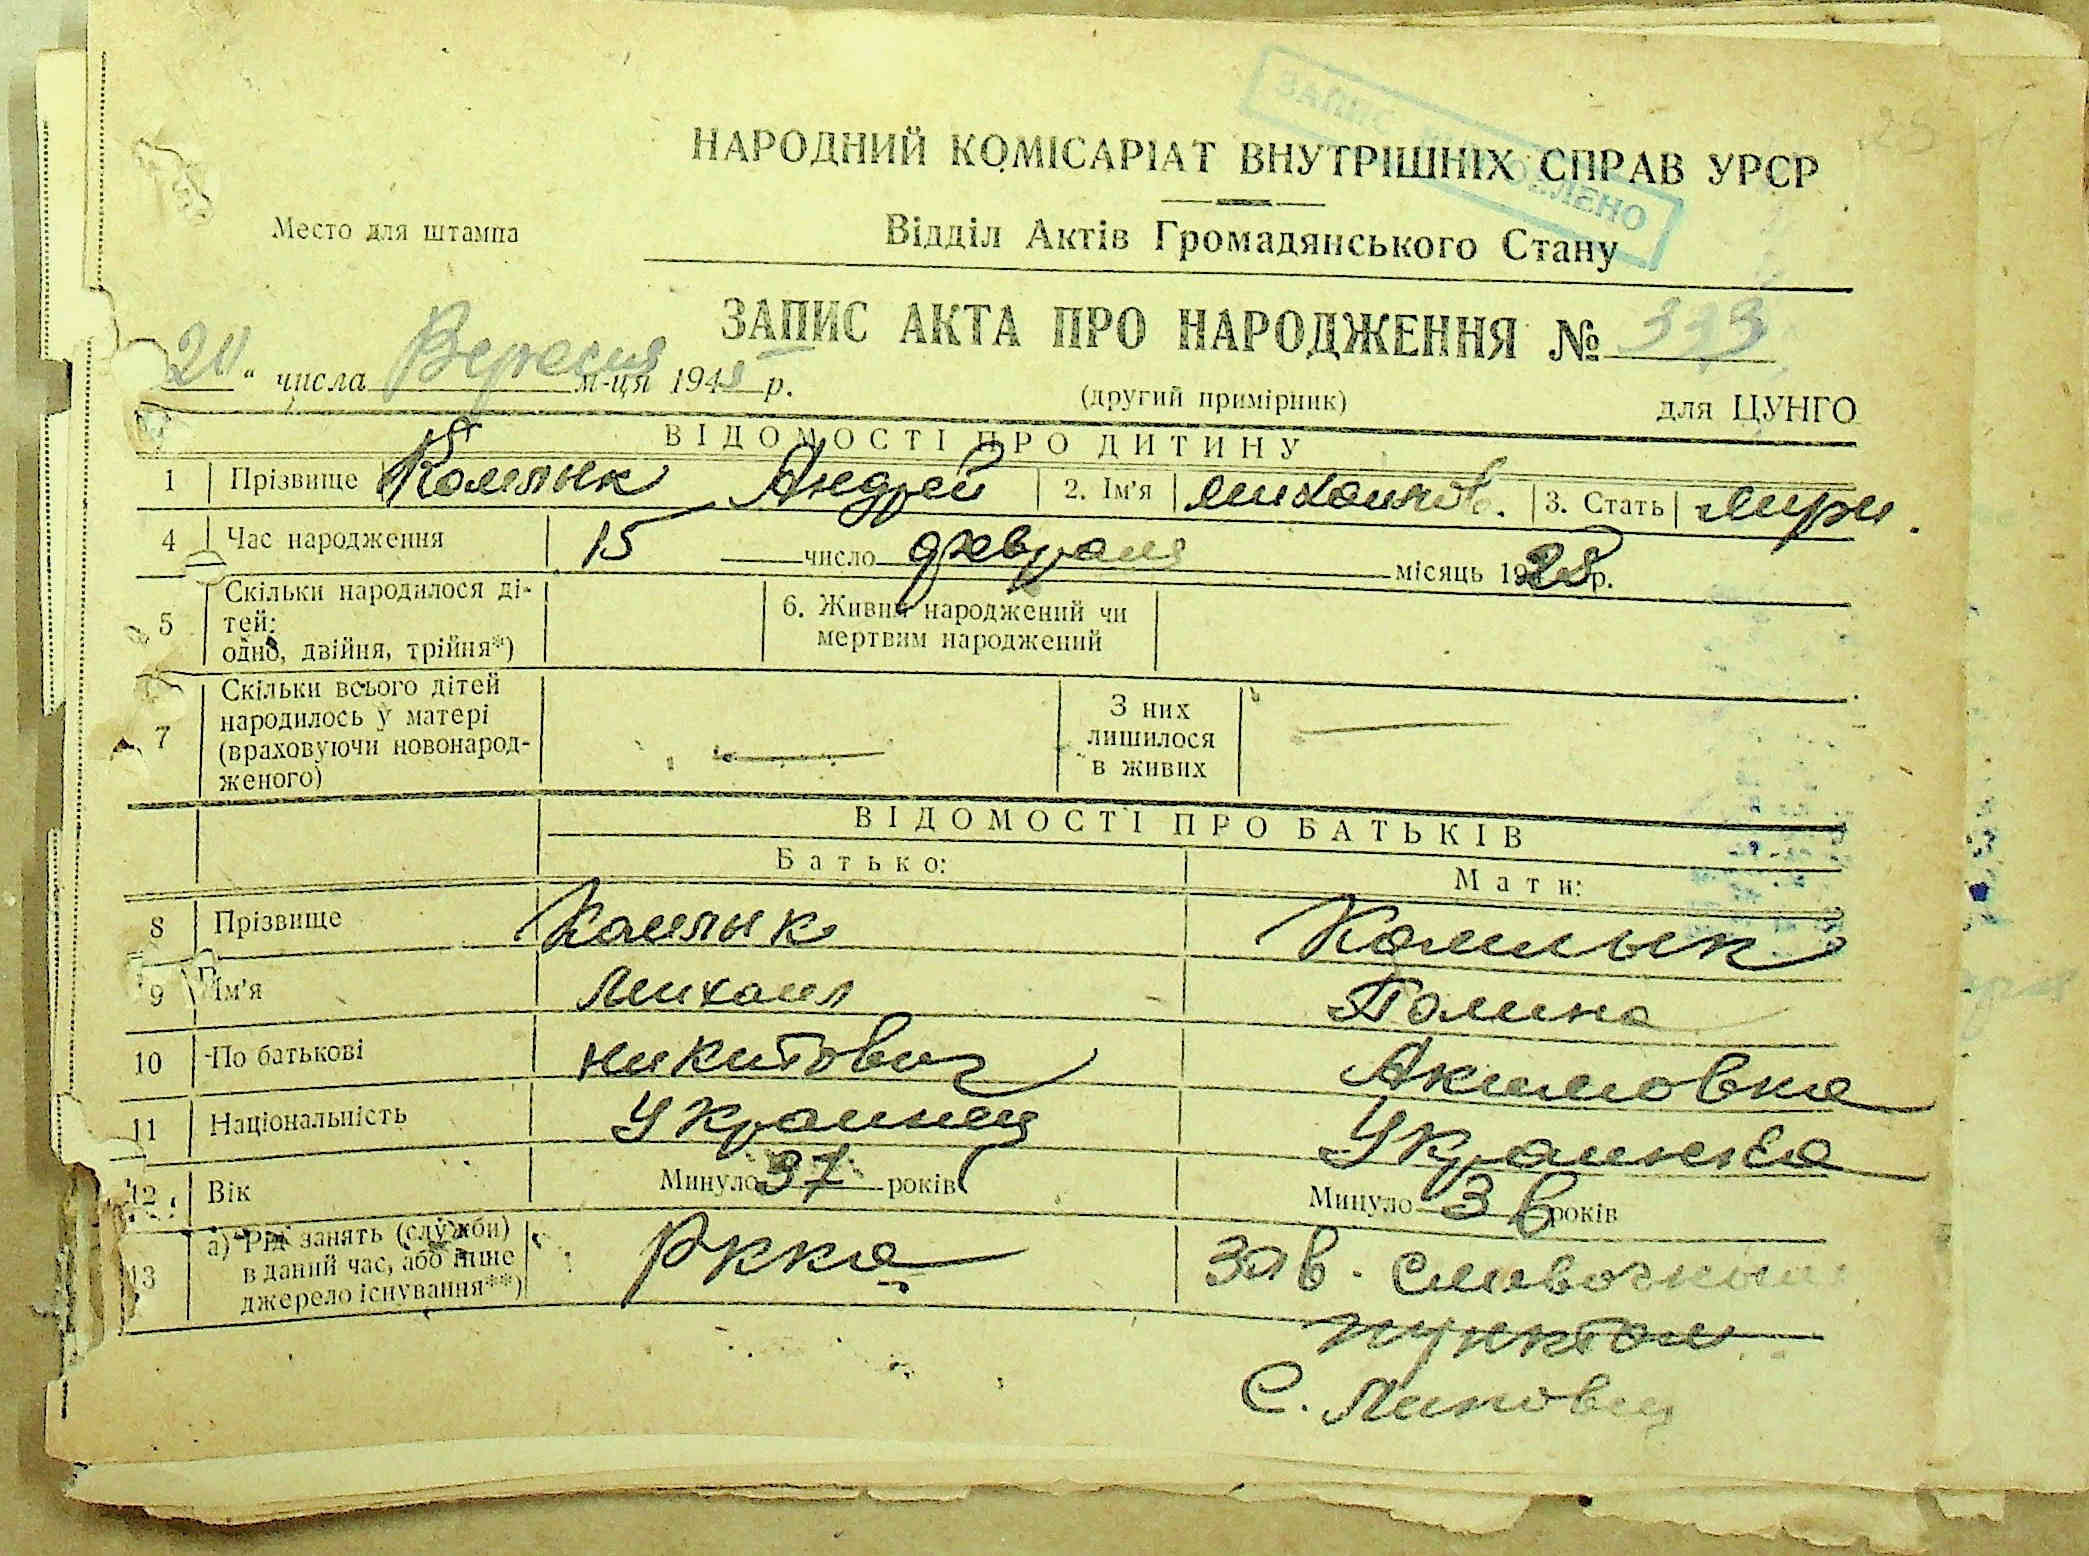 ЗАПИС ВІДНОВЛЕНО
НАРОДНИЙ КОМІСАРІАТ ВНУТРІШНІХ СПРАВ УРСР
Место для штампа
Відділ Актів Громадянського Стану
ЗАПИС АКТА ПРО НАРОДЖЕННЯ № 373
20 " числа Вересня м-ця 194 р.
(другий примірник) для ЦУНГО
ВІДОМОСТІ ПРО ДИТИНУ
1 Прізвище Комлык Андрей 2. Ім'я Михайлов. 3. Стать муж.
4 Час народження 15 число февраля місяць 1928 р.
5 Скільки народилося ді-
тей:
одно, двійня, трійня*)
6. Живим народжений чи
мертвим народжений
7 Скільки всього дітей
народилось у матері
(враховуючи новонарод-
женого)
З них
лишилося
в живих
ВІДОМОСТІ ПРО БАТЬКІВ
Батько: Мати:
8 Прізвище Комлык Комлык
9 Ім'я Михаил Полина
10 По батькові Никитович Акимовна
11 Національність Украинец Украинка
12 Вік Минуло 37 років Минуло 36 років
13 а) Рід занять (служби)
в даний час, або інше
джерело існування**)
Ркка Зав. сливочным
пунктом
С. Липовец